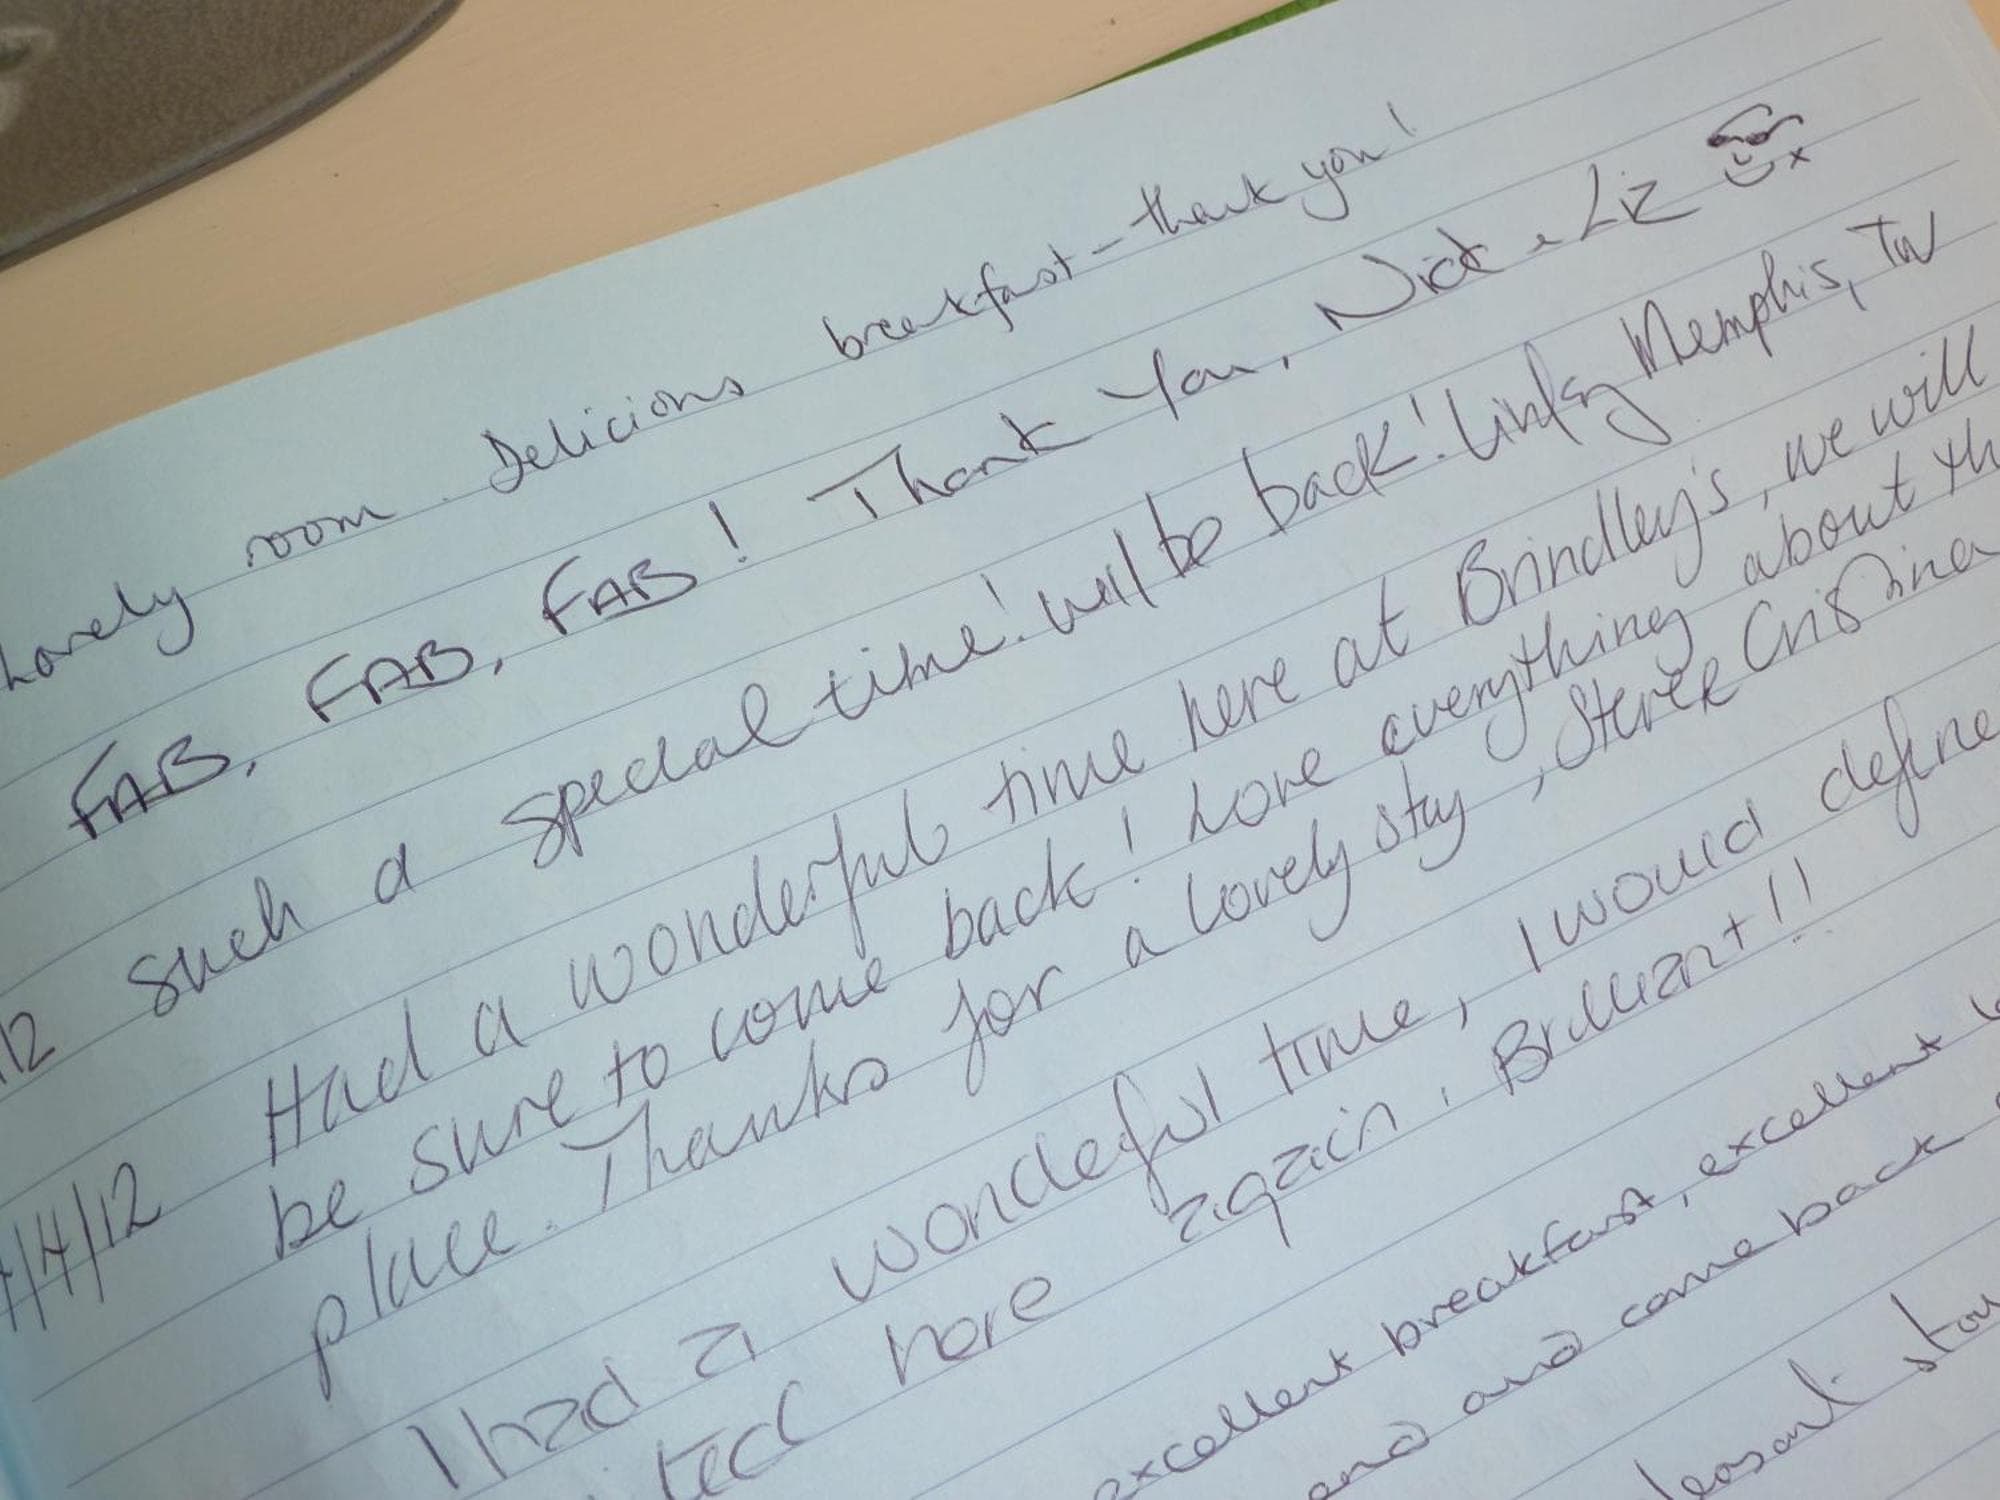 Lovely room. Delicious breakfast - thank you!
FAB, FAB, FAB! Thank You, Nick & Liz x
/12 Such a special time! will be back! Memphis, TN
/4/12 Had a wonderful time here at Brindley's, we will
be sure to come back! Love everything about th
place. Thanks for a lovely stay, Steve &
I had a wondeful time, I would define
ted here agazin. Brilliant!!
excellent breakfast, excellent
and and come back
leasant stay